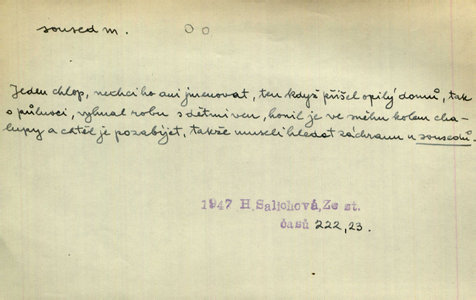 soused m.
Jeden chlop, nechci ho ani jmenovat, ten když přišel opilý domů, tak
o půlnoci, vyhnal robu s dětmi ven, honil je ve sněhu kolem cha-
lupy a chtěl je pozabíjet, takže museli hledat záchranu u sousedů.
1947 H.Salichová, Ze st.
časů 222,23.